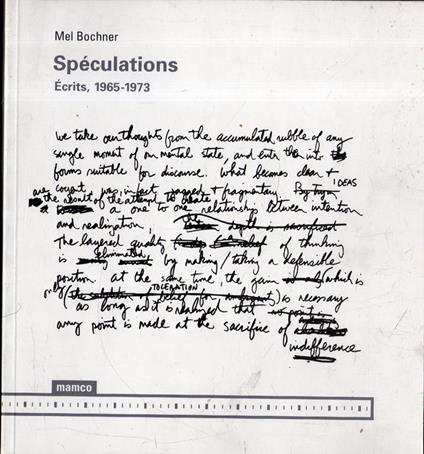 Mel Bochner
Spéculations
Écrits, 1965-1973
we take our thoughts from the accumulated rubble of any
single moment of our mental state, and enter them into the
forms suitable for discourse. What becomes clear +
cogent was, in fact, jagged + fragmentary. By try IDEAS
are the result of the attempt to create
a one to one relationship between intention
and realization. depth is sacrificed
The layered quality of thinking
is eliminated by making/taking a defensible
position. At the same time, the gain (which is
only TOLERATION
) is necessary
as long as it is realized that
any point is made at the sacrifice of
indifference
mamco